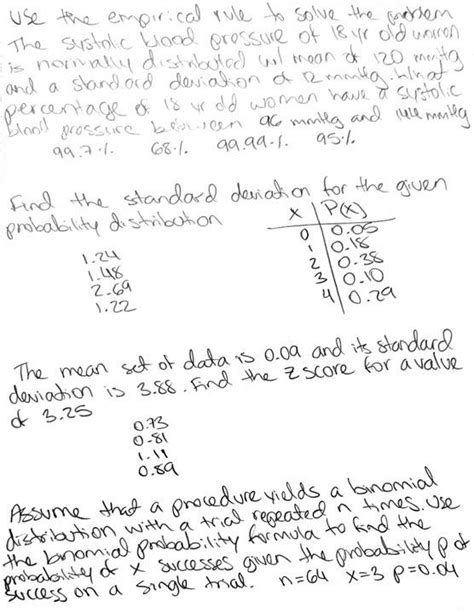 Use the empirical rule to solve the problem
The systolic blood pressure of 18 yr old women
is normally distributed w/ mean of 120 mmHg
and a standard deviation of 12 mmHg. What
percentage of 18 yr old women have a systolic
blood pressure between 96 mmHg and 144 mmHg
99.7%. 68%. 99.99%. 95%.
Find the standard deviation for the given
probability distribution
x P(x)
0 0.05
1 0.18
2 0.38
3 0.10
4 0.29
1.24
1.48
2.69
1.22
The mean set of data is 0.09 and its standard
deviation is 3.88. Find the z score for a value
of 3.25
0.73
0.81
1.11
0.89
Assume that a procedure yields a binomial
distribution with a trial repeated n times. Use
the binomial probability formula to find the
probability of x successes given the probability p of
success on a single trial. n=64 x=3 p=0.04